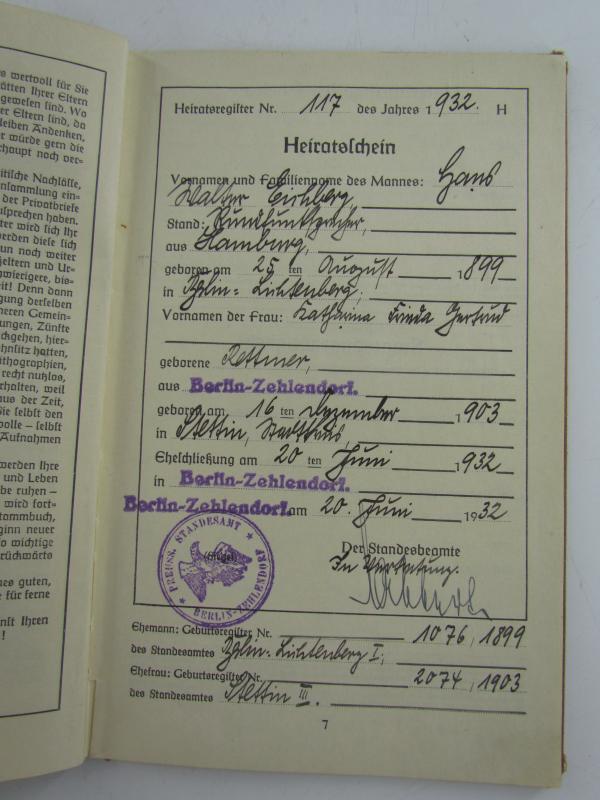 s wertvoll für Sie
ätten Ihrer Eltern
gewesen sind. Wo
er Eltern sind, da
bleiben Andenken,
r würde gern die
chaupt noch ver-
itische Nachlässe,
nsammlung ein-
der Privatbriefe
sprechen haben.
ter wird sich Ihr
erden diese sich
un noch weiter
zeltern und Ur-
wierigere, bis-
eit! Denn dann
gung derselben
heren Gemein-
ungen, Zünfte
ckgehen, hier-
hnlitz hatten,
thographien,
recht nutzlos,
rhalten, weil
aus der Zeit,
Sie selbst den
volle – selbst
Aufnahmen
werden Ihre
und Leben
be ruhen –
wird fort-
tammbuch,
ginn neuer
o wichtige
rückwärts
es guten,
e für ferne
nst Ihren
!
Heiratsregister Nr. 117 des Jahres 1932. H
Heiratsschein
Vornamen und Familienname des Mannes: Hans
Walter Eichberg,
Stand: Rundfunksprecher,
aus Hamburg,
geboren am 25 ten August 1899
in Berlin-Lichtenberg,
Vornamen der Frau: Katharina Frieda Gertrud
geborene Rettmer,
aus Berlin-Zehlendorf.
geboren am 16 ten Dezember 1903
in Stettin, Stadthaus,
Eheschließung am 20 ten Juni 1932
in Berlin-Zehlendorf.
Berlin-Zehlendorf. am 20. Juni 1932
PREUSS. STANDESAMT
(Siegel)
BERLIN-ZEHLENDORF
Der Standesbeamte
In Vertretung.
Ehemann: Geburtsregister Nr. 1076, 1899
des Standesamtes Berlin-Lichtenberg I,
Ehefrau: Geburtsregister Nr. 2074, 1903
des Standesamtes Stettin III.
7